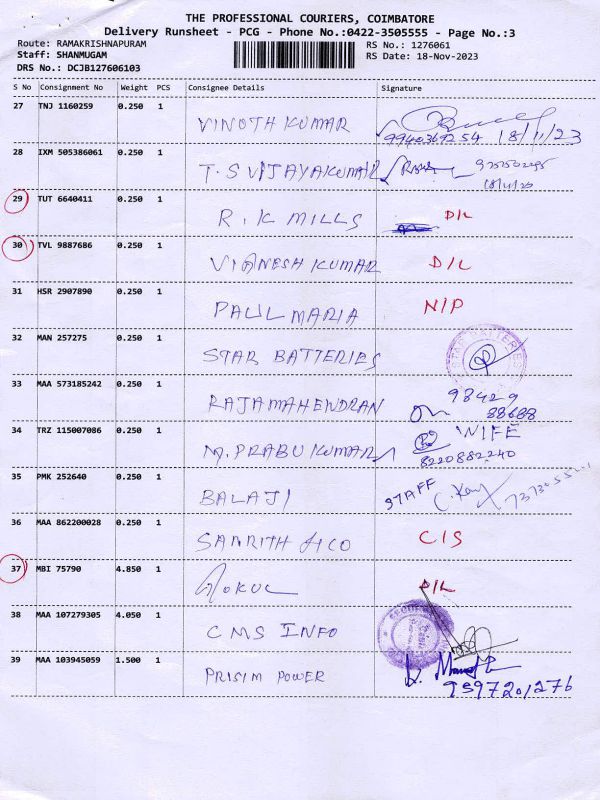 THE PROFESSIONAL COURIERS, COIMBATORE
Delivery Runsheet - PCG - Phone No.:0422-3505555 - Page No.:3
Route: RAMAKRISHNAPURAM
Staff: SHANMUGAM
DRS No.: DCJB127606103
RS No.: 1276061
RS Date: 18-Nov-2023
S No Consignment No Weight PCS Consignee Details Signature
27 TNJ 1160259 0.250 1 VINOTH KUMAR 9940369254 18/11/23
28 IXM 505386061 0.250 1 T.S VIJAYAKUMAR
29 TUT 6640411 0.250 1 R.K MILLS D/L
30 TVL 9887686 0.250 1 VIGNESH KUMAR D/L
31 HSR 2907890 0.250 1 PAUL MARIA N/P
32 MAN 257275 0.250 1 STAR BATTERIES STAR BATTERIES
33 MAA 573185242 0.250 1 RAJAMAHENDRAN 98429
88688
34 TRZ 115007086 0.250 1 M.PRABU KUMAR WIFE
8220882240
35 PMK 252640 0.250 1 BALAJI STAFF
36 MAA 862200028 0.250 1 C/S
37 MBI 75790 4.850 1 GOKUL D/L
38 MAA 107279305 4.050 1 CMS INFO
39 MAA 103945059 1.500 1 PRISIM POWER
9597201276